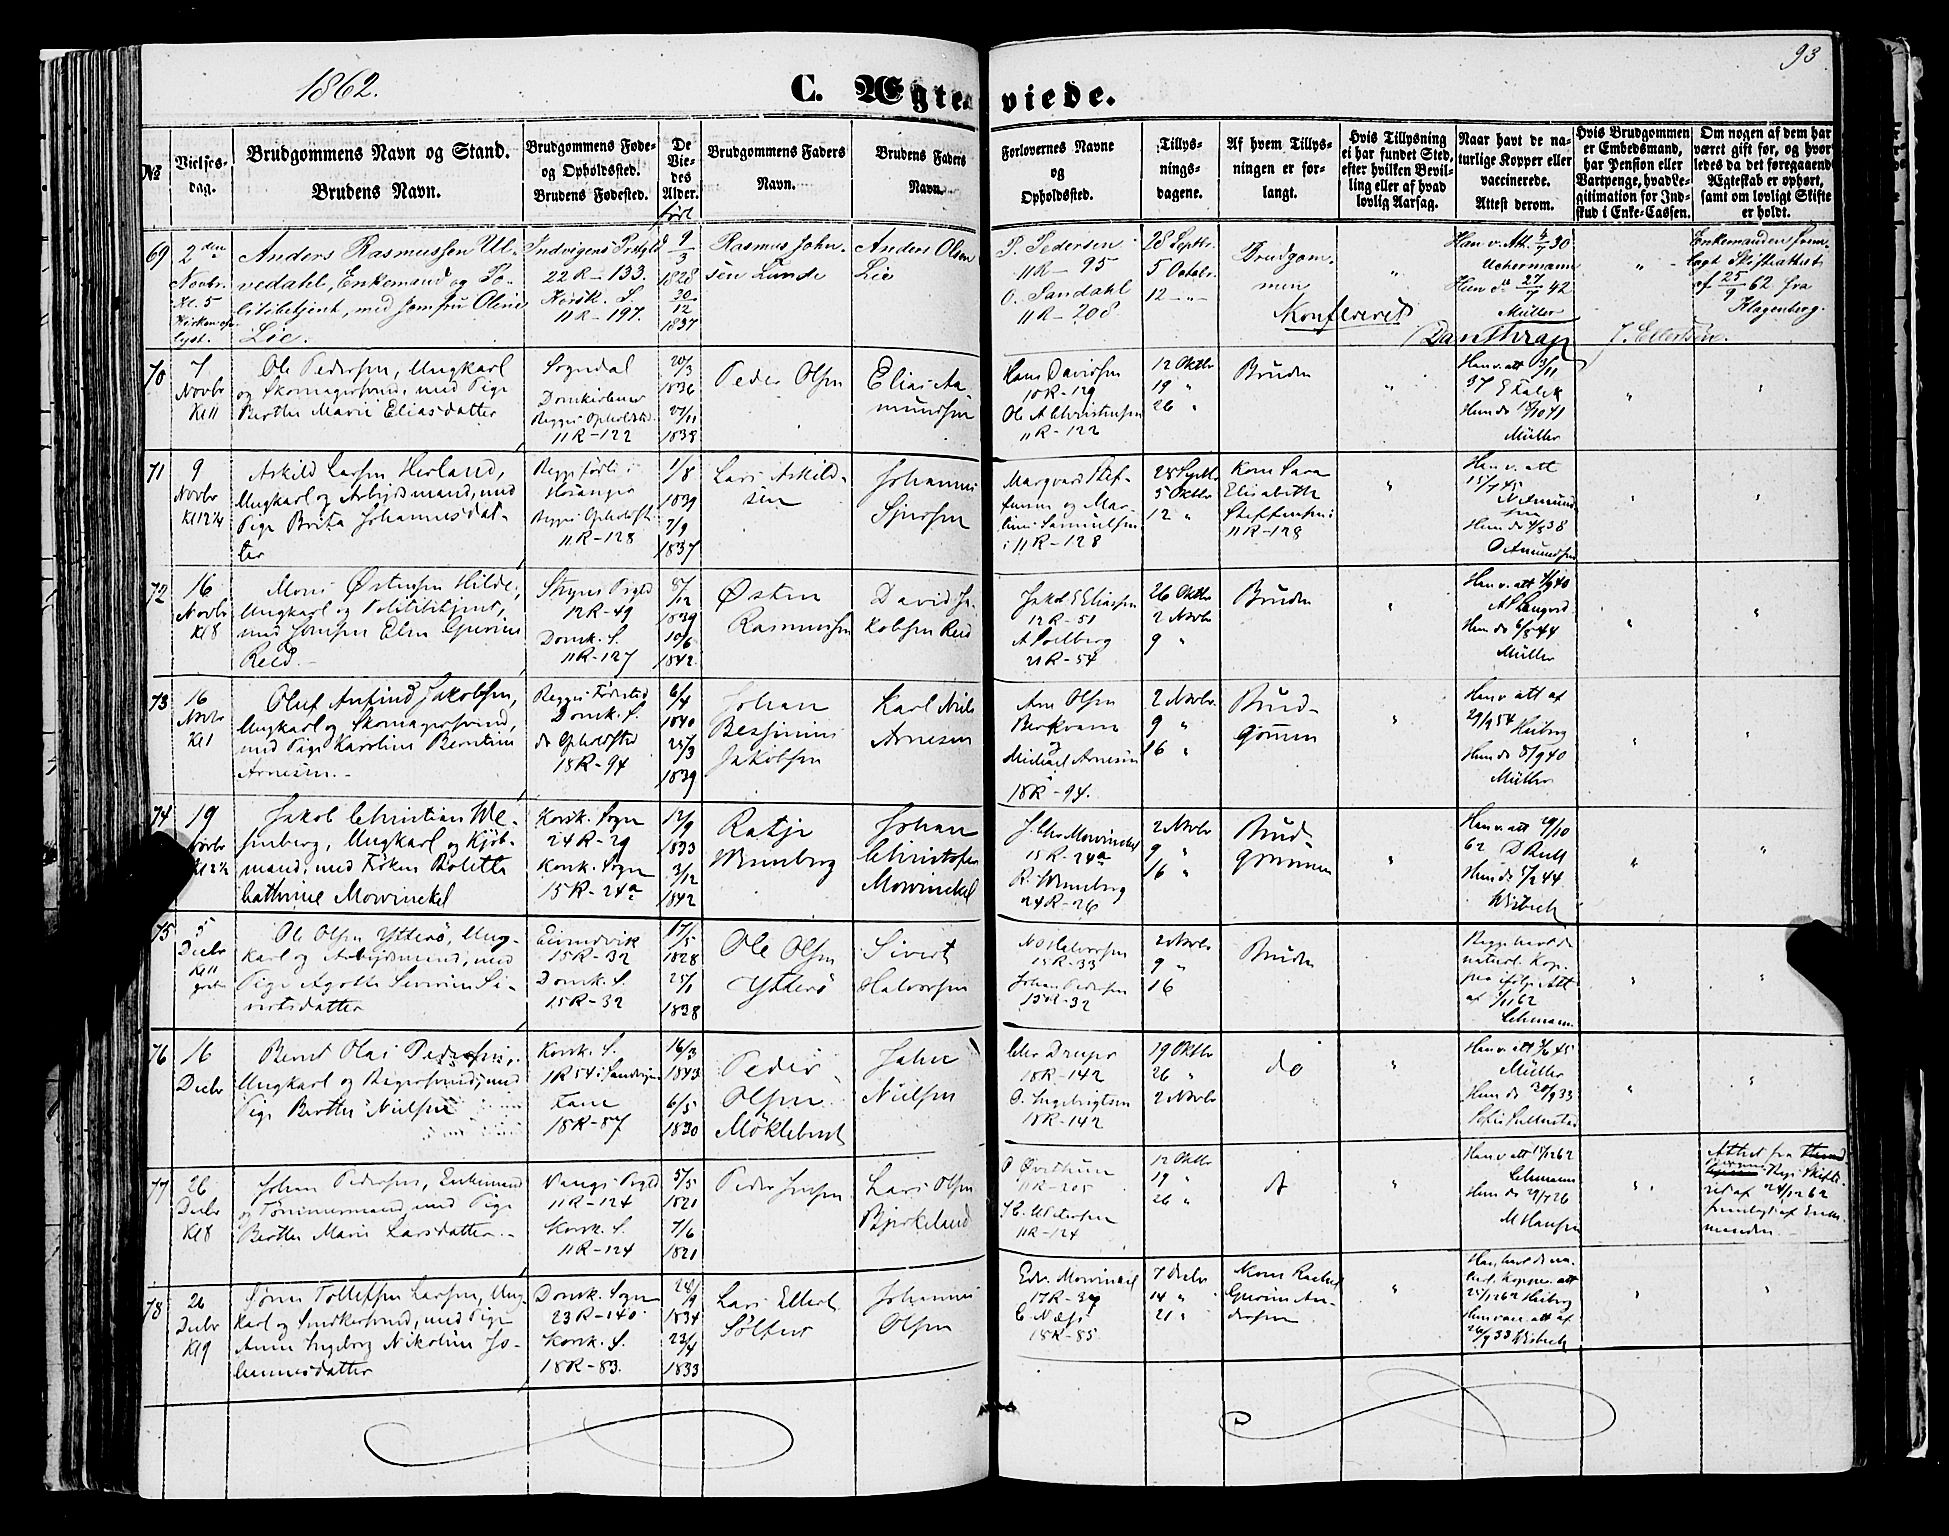 1862.
C. Ægteviede.
93
№
Vielses-
dag.
Brudgommens Navn og Stand.
Brudens Navn.
Brudgommens Føde-
og Opholdssted.
Brudens Fødested.
De
Vie-
des
Alder.
født
Brudgommens Faders
Navn.
Brudens Faders
Navn.
Forlovernes Navne
og
Opholdssted.
Tillys-
nings-
dagene.
Af hvem Tillys-
ningen er for-
langt.
Hvis Tillysning
ei har fundet Sted,
efter hvilken Bevil-
ling eller af hvad
lovlig Aarsag.
Naar havt de na-
turlige Kopper eller
vaccinerede.
Attest derom.
Hvis Brudgommen
er Embedsmand,
har Pension eller
Vartpenge, hvad Le-
gitimation for Ind-
skud i Enke-Cassen.
Om nogen af dem har
været gift før, og hvor-
ledes da det foregaaende
Ægteskab er ophørt,
samt om lovligt Skifte
er holdt.
69
2den
Novbr.
Kl. 5
Anders Rasmussen Ul-
vedahl, Enkemand og Po-
litibetjent, med Jomfru Oline
Lie.
Indvigens Præstgld
22 R - 133.
Korsk. S.
11 R - 197.
9/3
1828
30/12
1837
Rasmus Johan-
sen Lunde
Anders Olsen
Lie
P. Pedersen
11 R - 95
O. Sandahl
11 R - 208
28 Septbr.
5 Octobr.
12 - "
Brudgom-
men
"
Han v. Att. 4/7 30
Uchermann
Hun do 27/7 42
Müller
"
Enkemanden frem-
lagt Skifteattest
af 25/9 62 fra
Klagenberg.
Konfereret
Dan Thrap
J. Ellertsen.
70
7
Novbr
Kl 11
Ole Pedersen, Ungkarl
og Skomagersvend, med Pige
Berthe Marie Eliasdatter
Sogndal
Domkirkens
Begges Opholdsted
11 R - 122
20/3
1836
27/11
1838
Peder Olsen
Elias Aa-
mundsen
Hans Davidsen
18 R - 129
Ole A Christensen
11 R - 122
12 Oktbr
19 "
26 "
Bruden
"
Han v. att 13/11
37 E Falck
Hun do 18/10 41
Müller
"
"
71
9
Novbr
Kl 12 1/4
Askild Larsen Herland,
Ungkarl og Arbeidsmand, med
Pige Brita Johannesdat-
ter
Begge født i
Hosanger
Begges Opholdst.
11 R - 128
1/8
1839
7/9
1837
Lars Askild-
sen
Johannes
Sjursen
Marqvard Stef-
fensen og Mar-
tinus Samuelsen
i 11 R - 128
28 Septbr
5 Oktbr
12 "
Kone Sara
Elisabeth
Steffensen i
11 R - 128
"
Han v. att
15/7 45
N Amund
sen
Hun do 4/8 38
O Amundsen
"
"
72
16
Novbr
Kl 8
Mons Østensen Hilde,
Ungkarl og Politibetjent,
med Jomfru Elen Gurine
Reed.
Stryns Pgld
12 R - 49
Domk. S.
11 R - 127
1839
10/6
1842
Østen
Rasmussen
David Ja-
kobsen Reed
Jakob E Eliassen
12 R - 51
A Solberg
21 R - 54
26 Oktbr
2 Novbr
9 "
Bruden
"
Han v. att 4/9 40
Hun do 6/8 44
Müller
"
"
73
16
Novbr
Kl 1
Oluf Anfind Jakobsen,
Ungkarl og Skomagersvend,
med Pige Karoline Berntine
Arnesen.
Begges Fødested
Domk. S.
do Opholdsted
18 R - 94
6/4
1840
25/3
1839
Johan
Jakobsen
Karl Nils
Arnesen
Arn Olsen
Berkvam
og
Michael Arnesen
i
18 R - 94.
2 Novbr.
9 "
16 "
Brud-
gommen
"
Han v att af
29/9 54 Heiberg
Hun do 8/9 40
Müller
"
"
74
19
Novbr
Kl 12 1/2
Jakob Christian We-
senberg, Ungkarl og Kjøb-
mand, med Frøken Boletta
Cathrine Mowinckel
Korsk. Sogn
24 R - 29
Korsk. Sogn
15 R - 24a
12/9
1833
3/12
1842
Ratje
Wesenberg
Johan
Christofer
Mowinckel
J. Chr Mowinckel
15 R - 24a
R. Wesenberg
24 R - 26
2 Novbr
9 "
16 "
Brud-
gommen
"
Han v. att 29/10
62 D Bull
Hun do 5/2 44
Wisbech
"
"
75
5
Decbr
Kl 11
gratis
Ole Olsen Ytterø, Ung-
karl og Arbeidsmand, med
Pige Agothe Severine Si-
vertsdatter
Eivindvik
15 R - 32
Domk. S.
15 R - 32
17/5
1828
25/1
1838
Ole Olsen
Ytterø
Sivert
Halvorsen
N O Halvorsen
15 R - 33
Johan Pedersen
15 R - 32
2 Novbr
9 "
16
Bruden
Begge havt de
naturl. Kop-
per ifølge Att
af 1/11 62
Lehmann
"
"
76
16
Decbr
Bernt Olai Pedersen,
Ungkarl og Bagersvend, med
Pige Berthe Nielsen
Korsk. S.
1 R 54 i Sandvigen
Fane
18 R - 87
16/3
1843
6/5
1830
Peder
Olsen
Møklebust
John
Nielsen
Chr Dreyer
18 R - 142
O. Ingebrigtsen
18 R - 142
19 Oktbr
26 "
2 Novbr
do
"
Han v. att 3/6 45
Müller
Hun do 30/9 33
"
"
77
26
Decbr
Kl 8
Johan Pedersen, Enkemand
og Tømmermand, med Pige
Berthe Marie Larsdatter.
Vangs Pgld
11 R - 124
Korsk. S.
11 R - 124
5/5
1821
7/6
1821
Peder Jensen
Lars Olsen
Bjørkeland
O Øvsthun
11 R - 205
11 R - 124
12 Oktbr
19 "
26 "
"
Han v att 17/12 62
Lehmann
Hun do 29/7 26
M Hansen
"
Attest fra
Byes Skifte-
ret af 24/12 62
fremlagt af Enke-
manden.
78
26
Decbr
Kl 9
Søren Tollefsen Larsen, Ung-
karl og Snedkersvend, med Pige
Anne Ingeborg Nikoline Jo-
hannesdatter
Domk. Sogn
23 R - 140
Korsk. S.
18 R - 83.
24/9
1834
23/4
1833
Lars Ellert
Sølfest
Johannes
Olsen
Edv. Mowinckel
17 R - 37
C Næss
18 R - 85
7 Decbr
14 "
21 "
Kone Rachel
Gurine An-
dersen
"
Han havt de na-
turl. Kopper. att
23/12 62 Heiberg
Hun vac. att af
26/9 33 Wisbech
"
"